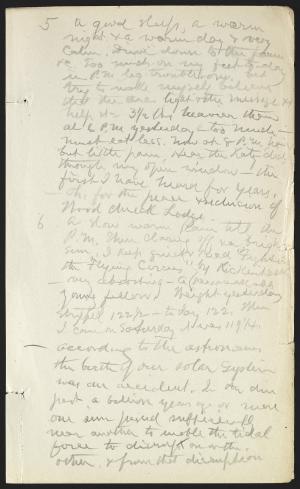 5 A good sleep, a warm
night & a warm day & very
calm. Drive down to the farm
&c. Too much on my feet to-day
in P.M. leg troublesome, but
try to make myself believe
that the arc light & the massage
help it. 3/4 lbs heavier than
at 6 P.M. yesterday — too much —
must eat less. Now at 8 P.M.
but little pain. Hear the Katy-did
through my open window — the
first I have heard for years.
— Oh, for the peace & seclusion of
Woodchuck Lodge.
6 A slow warm rain till
P.M. then clearing off
Sun, I keep quiet & read Fighting
the Flying Circus, by Rickenbacker
— very absorbing — a
young fellow. Weight yesterday
stripped 122 1/2 — to-day 122. When
I came on Saturday it was 119 1/4.
— According to the astronomers
the birth of our solar system
was an accident. In the dim
past a billion years ago or more
one sun passed sufficiently
near another to enable the tidal
force to disrupt one or the
other, & from that disruption